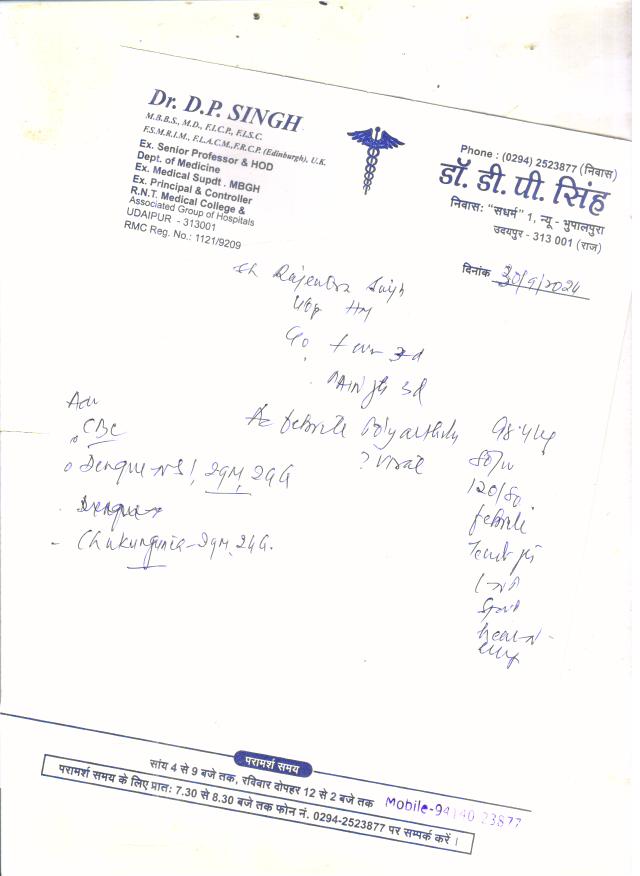 Dr. D.P. SINGH
M.B.B.S., M.D., F.I.C.P., F.I.S.C.
F.S.M.R.I.M., F.L.A.C.M.,F.R.C.P. (Edinburgh), U.K.
Ex. Senior Professor & HOD
Dept. of Medicine
Ex. Medical Supdt . MBGH
Ex. Principal & Controller
R.N.T. Medical College &
Associated Group of Hospitals
UDAIPUR - 313001
RMC Reg. No.: 1121/9209
Phone : (0294) 2523877 (निवास)
डॉ. डी. पी. सिंह
निवास: "सधर्म" 1, न्यू - भुपालपुरा
उदयपुर - 313 001 (राज)
दिनांक 30/9/2024
Sh Rajendra Singh
3d
3d
Adv
CBC
Ac febrile Polyarthritis
? Viral
98.4
80/m
120/80
febrile
Dengue NS1, IgM, IgG
Dengue
Chikungunia - IgM, IgG.
परामर्श समय
सांय 4 से 9 बजे तक, रविवार दोपहर 12 से 2 बजे तक Mobile-94140 23877
परामर्श समय के लिए प्रात: 7.30 से 8.30 बजे तक फोन नं. 0294-2523877 पर सम्पर्क करें ।